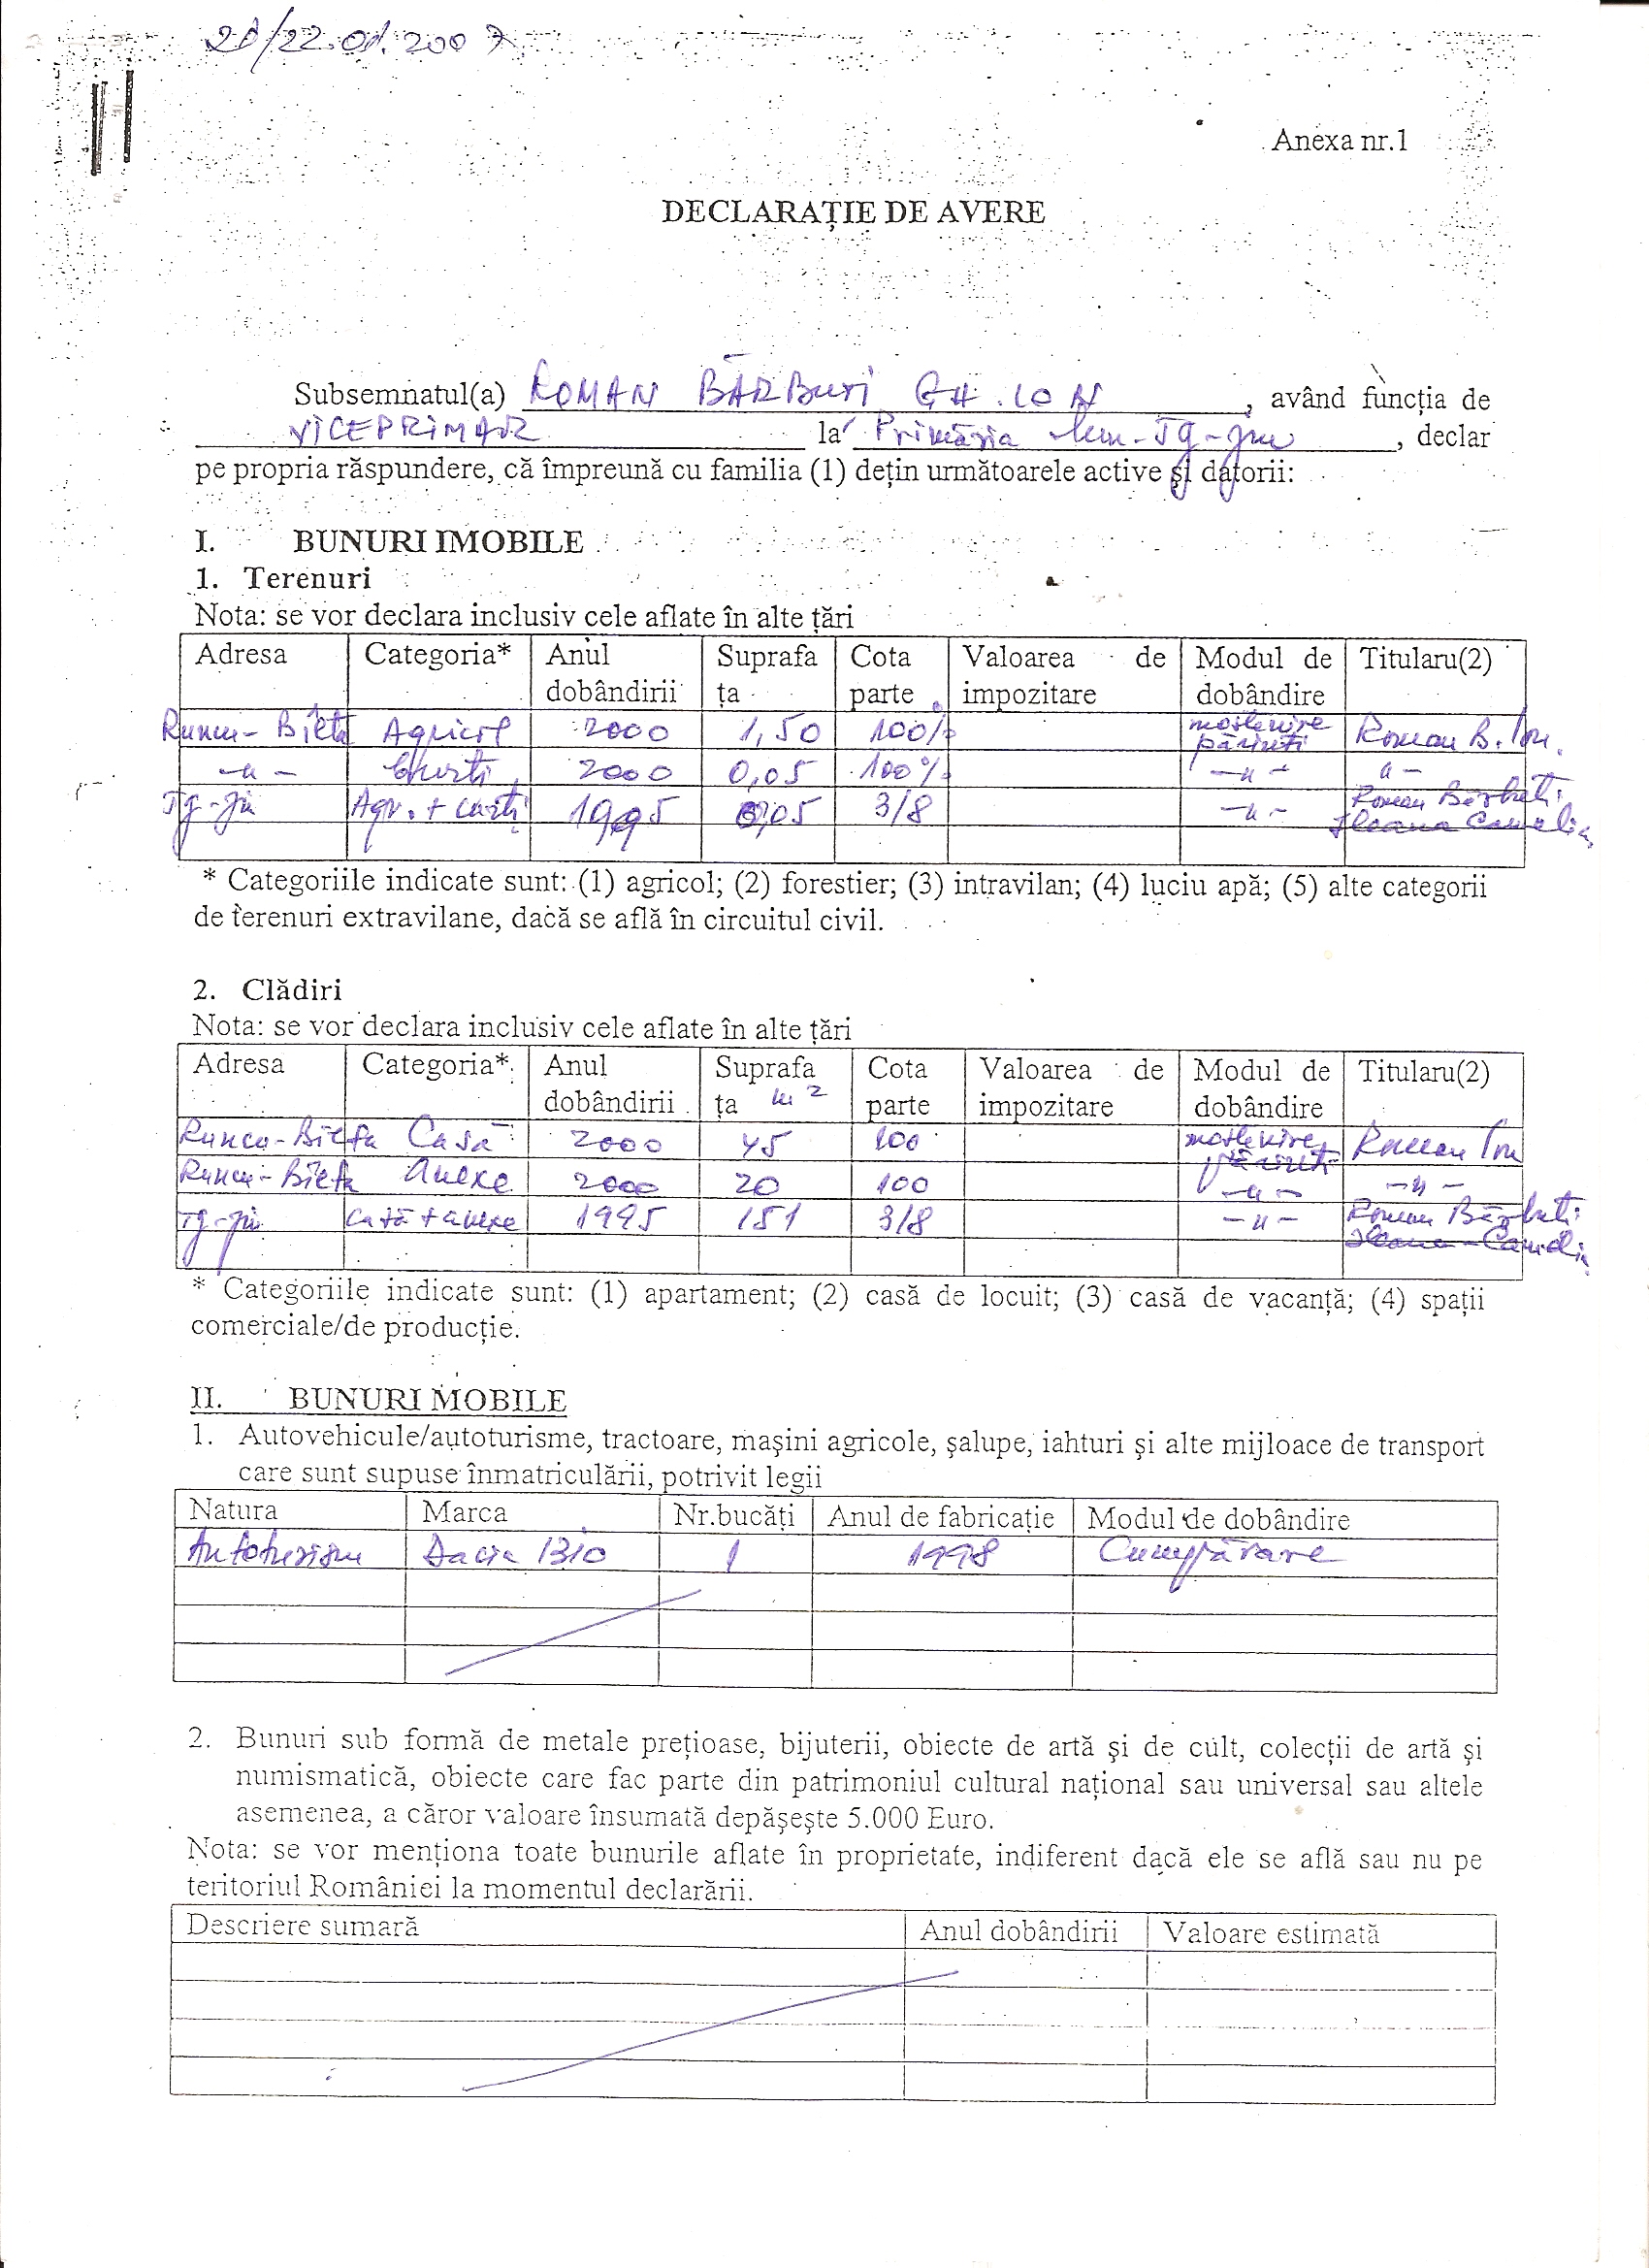 21/22.01.2007
Anexa nr.1
DECLARAȚIE DE AVERE
Subsemnatul(a) ROMAN BĂRBUȚI GH. ION, având funcția de
VICEPRIMAR la Primăria Mun. Tg-Jiu, declar
pe propria răspundere, că împreună cu familia (1) dețin următoarele active și datorii:
I. BUNURI IMOBILE
1. Terenuri
Nota: se vor declara inclusiv cele aflate în alte țări
Adresa Categoria* Anul dobândirii Suprafața Cota parte Valoarea de impozitare Modul de dobândire Titularu(2)
Runcu-Bîlta Agricol 2000 1,50 100% moștenire părinți Roman B. Ion.
-"- Curți 2000 0,05 100% -"- "-
Tg-Jiu Agr. + curți 1995 0,05 3/8 -"- Roman Bărbuți Ileana Camelia
* Categoriile indicate sunt: (1) agricol; (2) forestier; (3) intravilan; (4) luciu apă; (5) alte categorii
de terenuri extravilane, dacă se află în circuitul civil.
2. Clădiri
Nota: se vor declara inclusiv cele aflate în alte țări
Adresa Categoria* Anul dobândirii Suprafața m2 Cota parte Valoarea de impozitare Modul de dobândire Titularu(2)
Runcu-Bîlta Casă 2000 45 100 moștenire părinți Roman Ion
Runcu-Bîlta Anexe 2000 20 100 -"- -"-
Tg-Jiu Casă + anexe 1995 151 3/8 -"- Roman Bărbuți Ileana-Camelia
* Categoriile indicate sunt: (1) apartament; (2) casă de locuit; (3) casă de vacanță; (4) spații
comerciale/de producție.
II. BUNURI MOBILE
1. Autovehicule/autoturisme, tractoare, mașini agricole, șalupe, iahturi și alte mijloace de transport
care sunt supuse înmatriculării, potrivit legii
Natura Marca Nr.bucăți Anul de fabricație Modul de dobândire
Autoturism Dacia 1310 1 1998 Cumpărare
2. Bunuri sub formă de metale prețioase, bijuterii, obiecte de artă și de cult, colecții de artă și
numismatică, obiecte care fac parte din patrimoniul cultural național sau universal sau altele
asemenea, a căror valoare însumată depășește 5.000 Euro.
Nota: se vor menționa toate bunurile aflate în proprietate, indiferent dacă ele se află sau nu pe
teritoriul României la momentul declarării.
Descriere sumară Anul dobândirii Valoare estimată